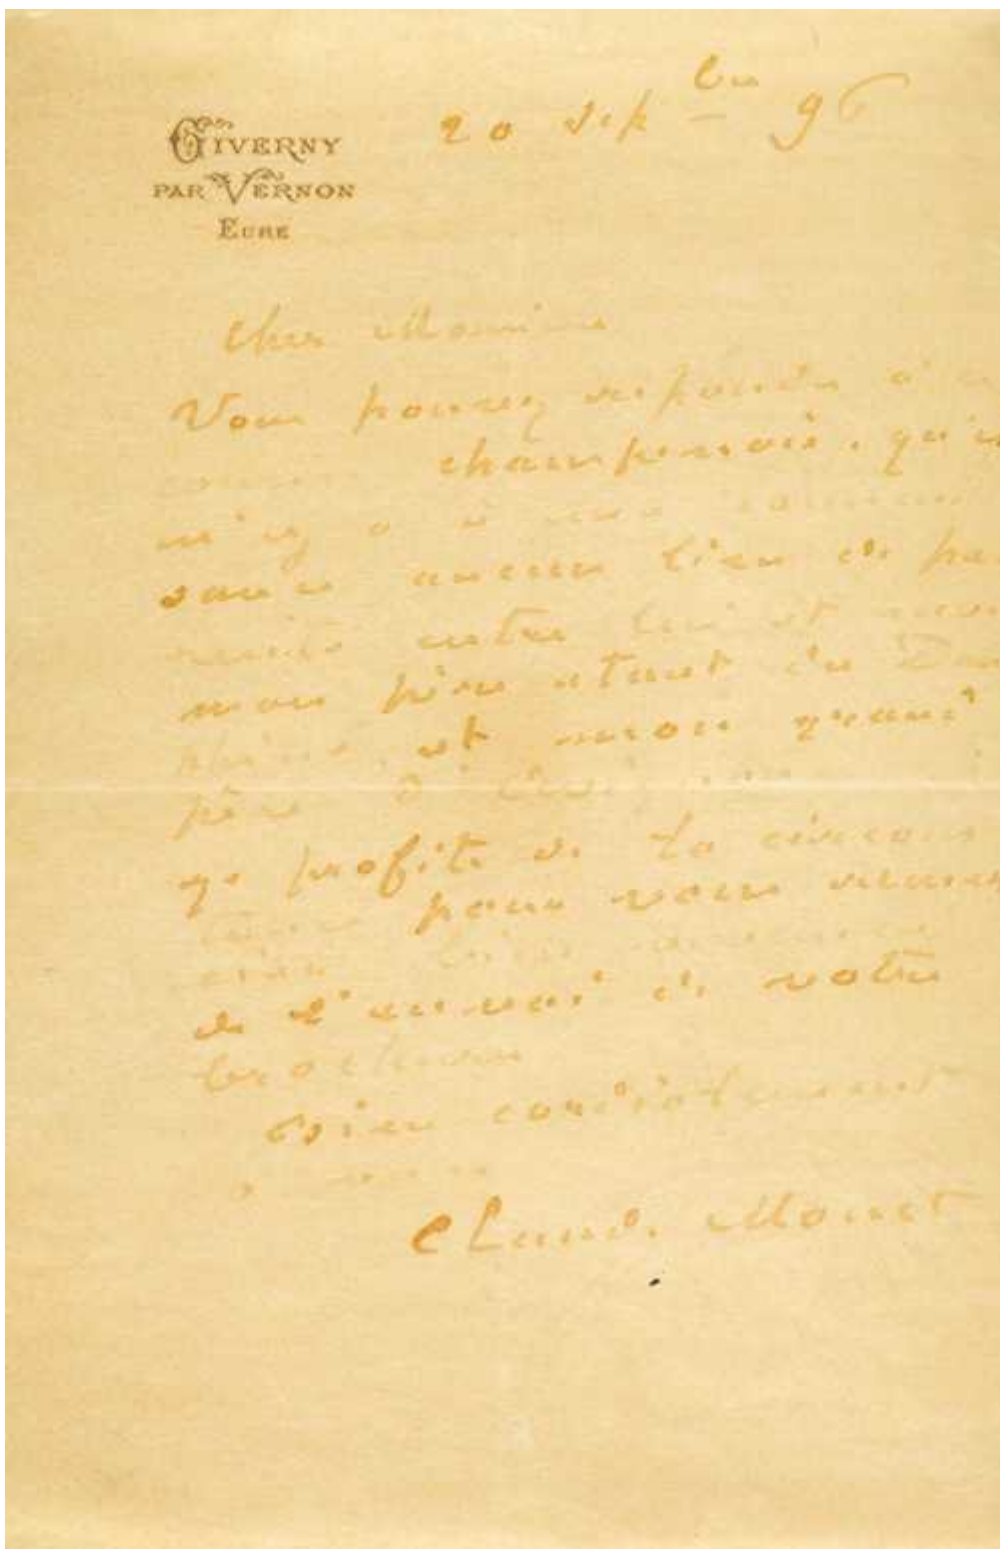 GIVERNY
PAR VERNON
EURE
20 Sept bre 96
Cher Monsieur
Vous pouvez répondre à
champenois, qu'i
n'y a
sans aucun lien de pa
renté entre lui et moi
mon père étant du Dau
phiné, et mon grand
père d'
Je profite de la circons
tance pour vous remer
cier bien
de l'envoi de votre
brochure
Bien cordialement
Claude Monet